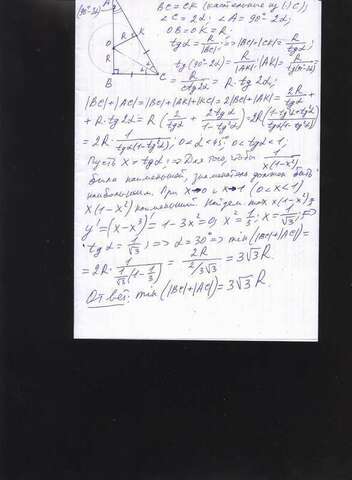 (90°-2α) A
BC = CK (касательные из (·)C);
∠C = 2α; ∠A = 90°-2α;
OB = OK = R.
tgα = R/|BC|; ⇒ |BC| = |CK| = R/tgα;
tg(90°-2α) = R/|AK|; |AK| = R/tg(90°-2α) =
= R/ctg2α = R·tg2α;
O R K
R
B C
|BC|+|AC| = |BC|+|AK|+|KC| = 2|BC|+|AK| = 2R/tgα +
+ R·tg2α = R(2/tgα + 2tgα/(1-tg²α)) = 2R(1-tg²α+tg²α)/(tgα(1-tg²α)) =
= 2R·1/(tgα(1-tg²α)); 0<α<45°, 0<tgα<1;
Пусть x = tgα; ⇒ Для того, чтобы 1/(x(1-x²))
была наименьшей, знаменатель должен быть
наибольшим. При x→0 и x→1 (0<x<1)
x(1-x²) наименьший. Найдем max x(1-x²);
y' = (x-x³)' = 1-3x² = 0; x² = 1/3; x = 1/√3;
tgα = 1/√3; ⇒ α = 30° ⇒ min(|BC|+|AC|) =
= 2R·1/(1/√3(1-1/3)) = 2R/(2/3√3) = 3√3 R.
Ответ: min(|BC|+|AC|) = 3√3 R.